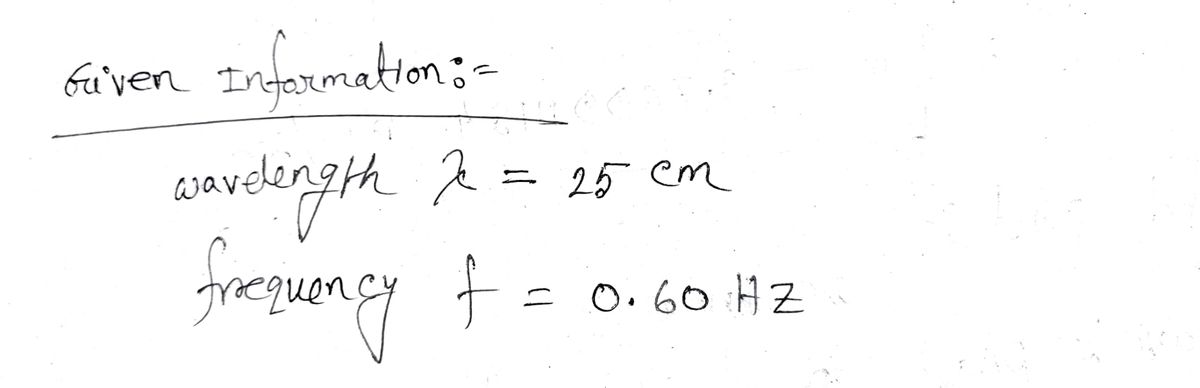 Given Information:-
wavelength λ = 25 cm
frequency f = 0.60 Hz